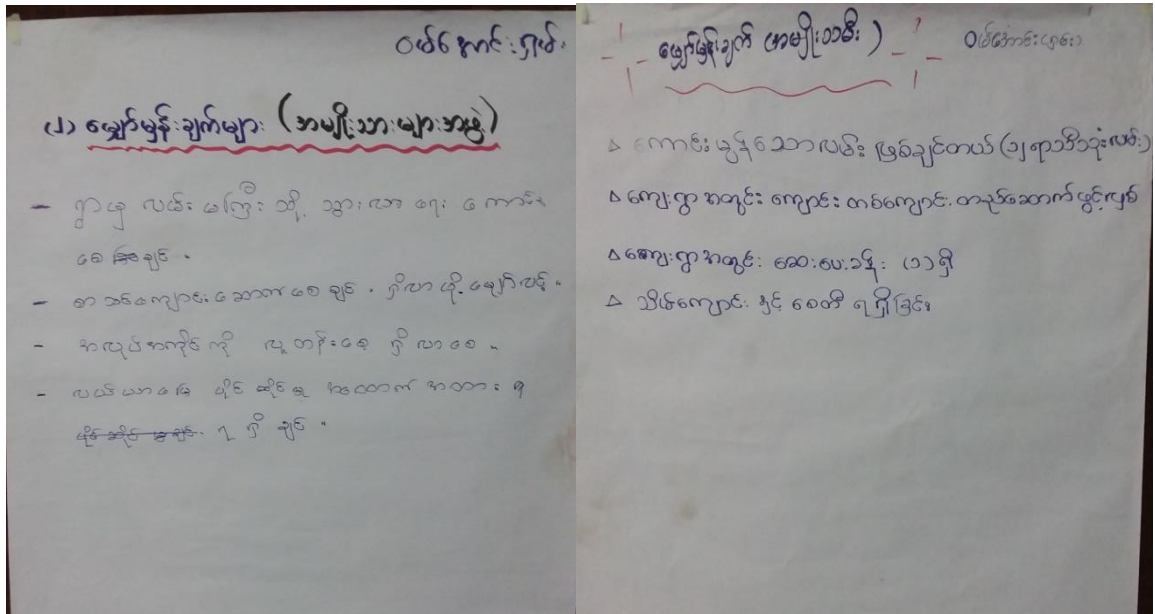 ဝမ်အောင်းရှမ်း
(၂) မျှော်မှန်းချက်များ (အမျိုးသားများအဖွဲ့)
- ရွာမှ လမ်းမကြီးသို့ သွားလာရေး ကောင်း
စေချင်။
- စာသင်ကျောင်းဆောက်စေချင်။ ရှိလာဖို့မျှော်လင့်။
- အလုပ်အကိုင်ကို လူတန်းစေ့ ရှိလာစေ။
- လယ်ယာမြေ ပိုင်ဆိုင်မှု အထောက်အထား ရ
ရရှိချင်။
မျှော်မှန်းချက် (အမျိုးသမီး)
ဝမ်အောင်း
△ ကောင်းမွန်သောလမ်း ဖြစ်ချင်တယ် (၁၂ ရာသီသုံးလမ်း)
△ ကျေးရွာအတွင်း ကျောင်းတစ်ကျောင်း တည်ဆောက်ဖွင့်လှစ်
△ ကျေးရွာအတွင်း ဆေးပေးခန်း (၁) ရှိ
△ သိမ်ကျောင်း နှင့် စေတီ ရရှိခြင်း